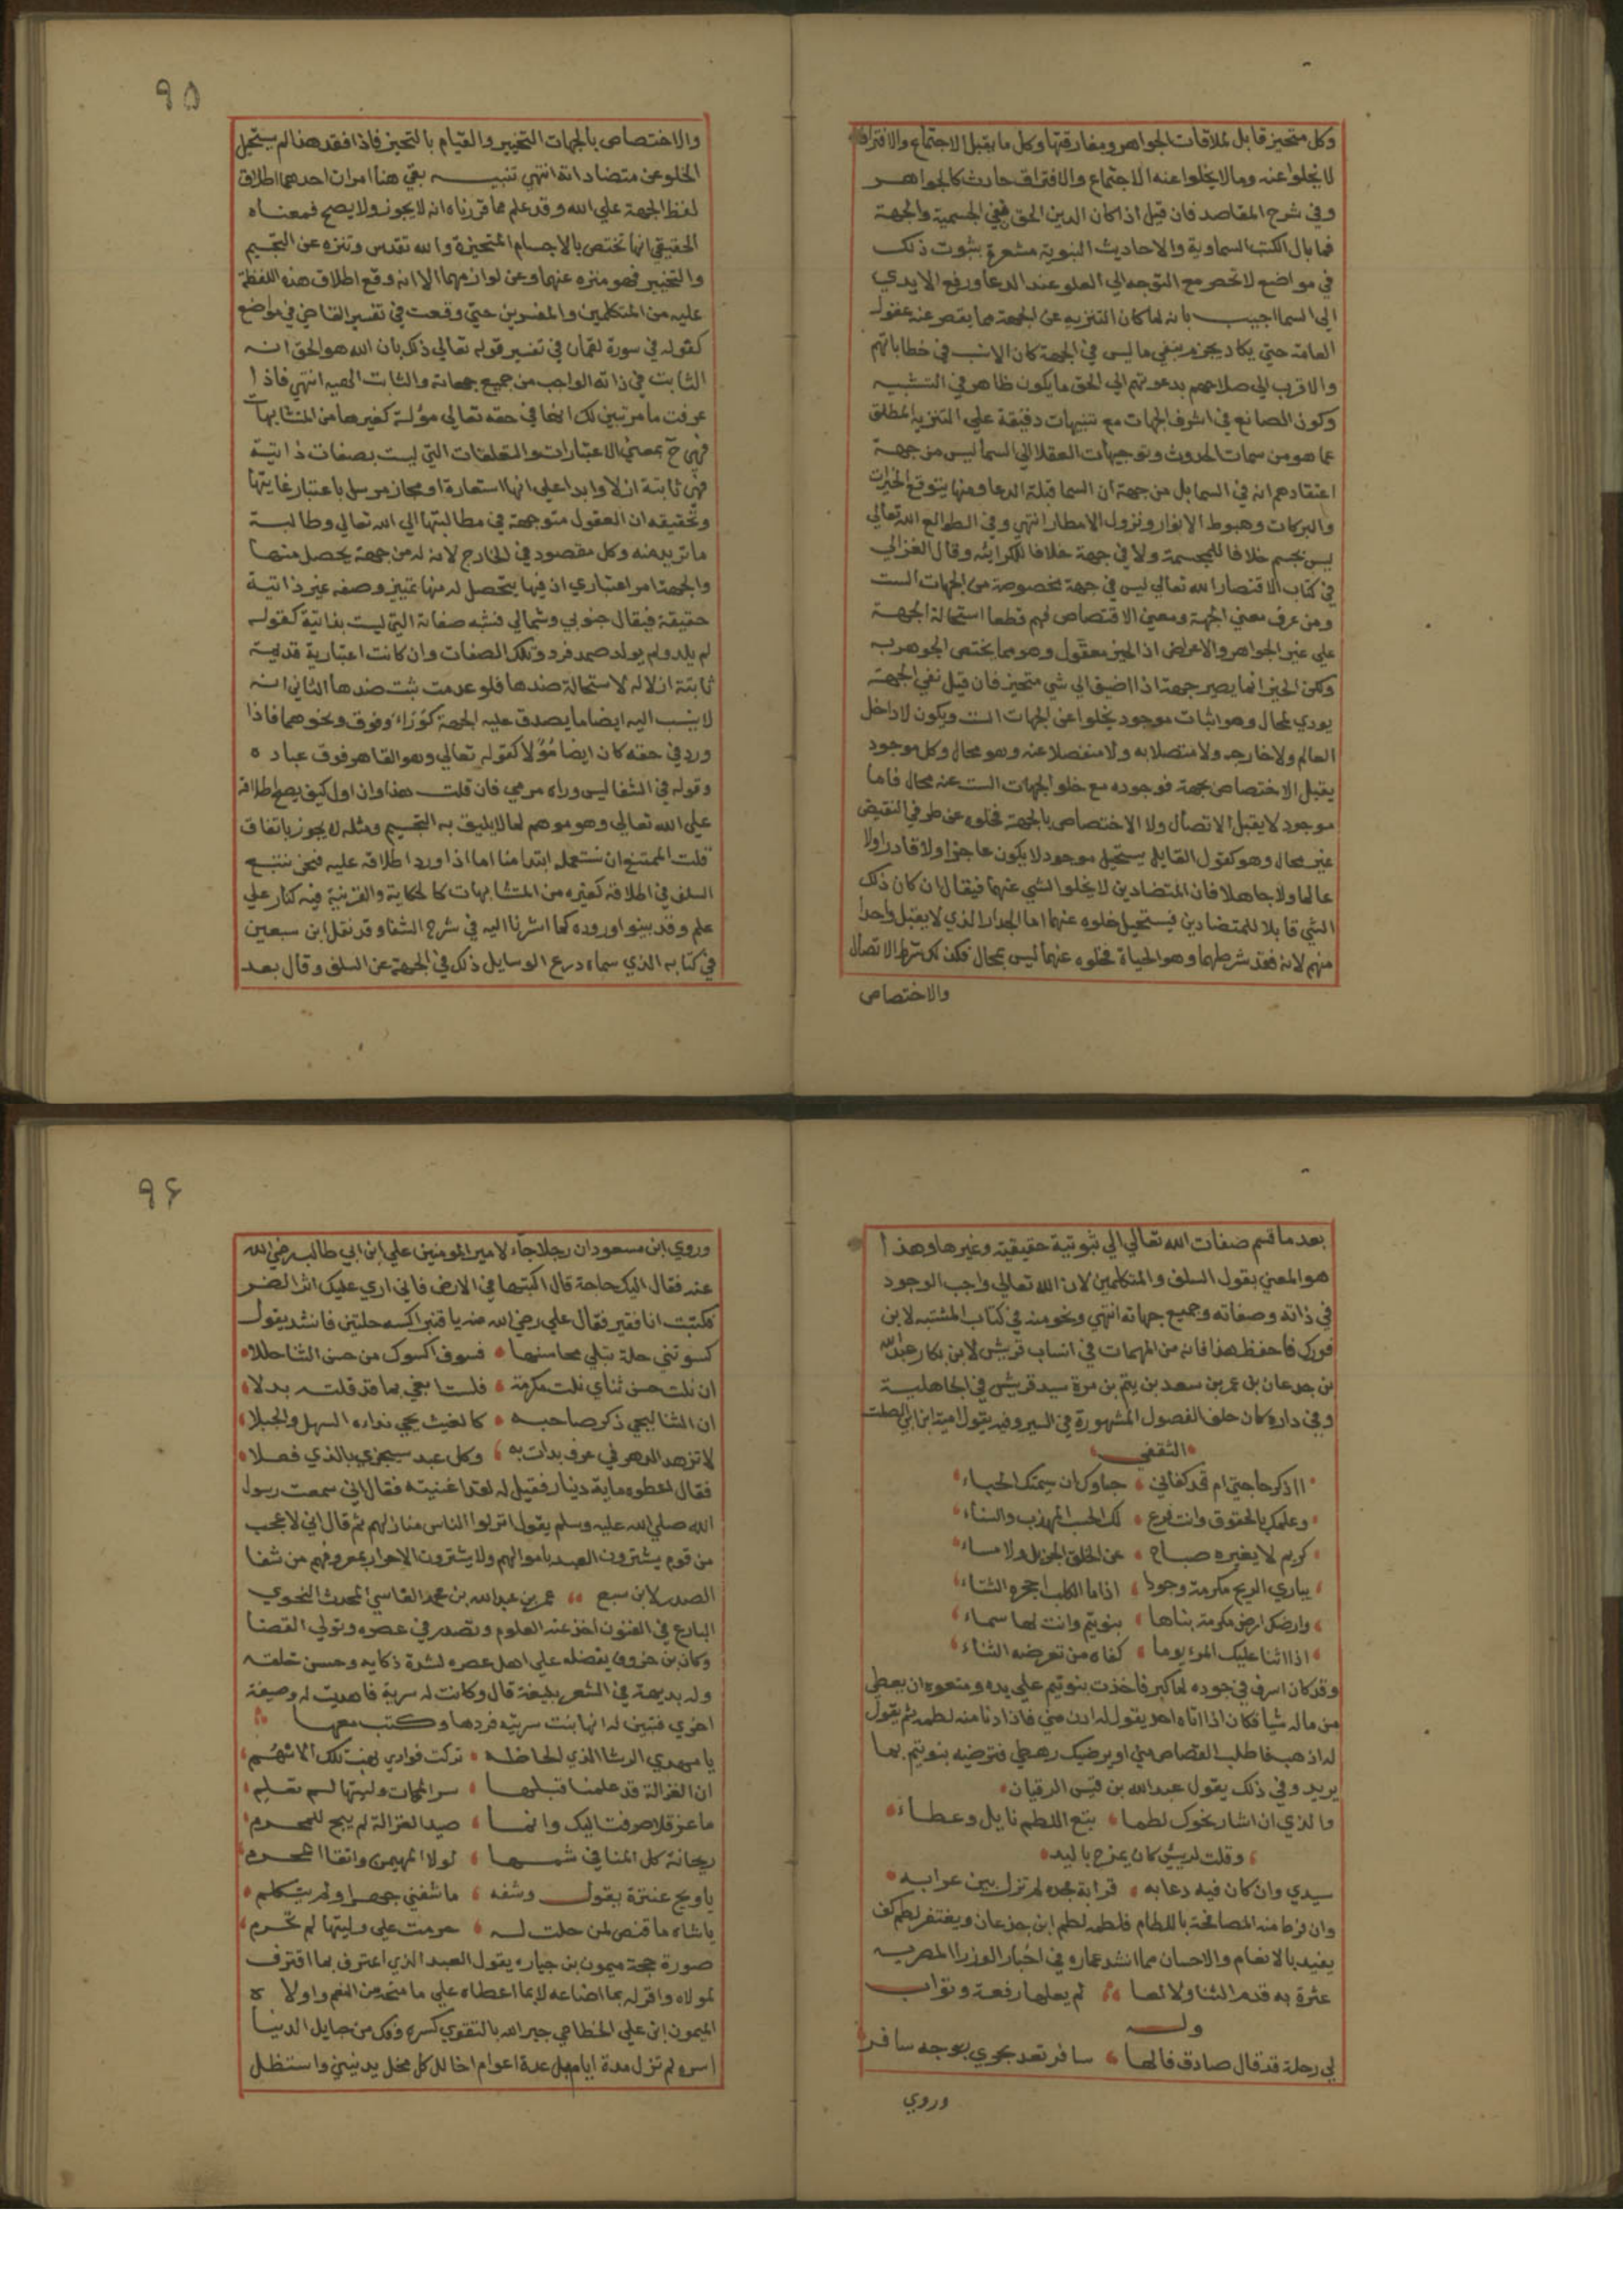 وكل متحيز قابل لملاقات الجواهر ومفارقتها وكل ما يقبل الاجتماع والافتراق
لا يخلوا عنه وما لا يخلوا عنه الاجتماع والافتراق حادث كالجواهر
وفي شرح المقاصد فان قيل اذا كان الدين الحق نفي الجسمية والجهة
فما بال الكتب السماوية والاحاديث النبوية مشعرة بثبوت ذلك
في مواضع لا تحصر مع التوجه الي العلو عند الدعا ورفع الايدي
الي السما اجيب بانه لما كان التنزيه عن الجهة مما يقصر عنه عقول
العامة حتي يكاد يجزم بنفي ما ليس في الجهة كان الانسب في خطاباتهم
والاقرب الي صلاحهم بدعوتهم الي الحق ما يكون ظاهر في التشبيه
وكون الصانع في اشرف الجهات مع تنبيهات دقيقة علي التنزيه المطلق
عما هو من سمات الحدوث وتوجيهات العقلا الي السما ليس من جهة
اعتقادهم انه في السما بل من جهة ان السما قبلة الدعا ومنها يتوقع الخيرات
والبركات وهبوط الانوار ونزول الامطار انتهي وفي الطوالع الله تعالي
ليس بجسم خلافا للمجسمة ولا في جهة خلافا للكراميه وقال الغزالي
في كتاب الاقتصار الله تعالي ليس في جهة مخصوصة من الجهات الست
ومن عرف معني الجهة ومعني الاختصاص فهم قطعا استحالة الجهة
علي غير الجواهر والاعراض اذ الحيز معقول وهو مما يختص الجوهر به
ولكن الحيز انما يصير جهة اذا اضيف الي شي متحيز فان قيل نفي الجهة
يودي لمحال وهو اثبات موجود يخلوا عن الجهات الست ويكون لا داخل
العالم ولا خارجه ولا متصلا به ولا منفصلا عنه وهو محال وكل موجود
يقبل الاختصاص بجهة فوجوده مع خلو الجهات الست عنه محال فاما
موجود لا يقبل الاتصال ولا الاختصاص بالجهة فخلوه عن طرفي النقيض
غير محال وهو كقول القايل يستحيل موجود لا يكون عاجزا ولا قادرا ولا
عالما ولا جاهلا فان المتضادين لا يخلوا الشي عنهما فيقال ان كان ذلك
الشي قابلا للمتضادين فيستحيل خلوه عنهما اما الجدار الذي لا يقبل واحدا
منهم لانه فقد شرطهما وهو الحياة فخلوه عنهما ليس بمحال فكذلك شرط الاتصال
والاختصاص
٩٥
والاختصاص بالجهات التحيز والقيام بالمتحيز فاذا فقد هذا لم يستحيل
الخلو عن متضاداته انتهي تنبيه بقي هنا امران احدهما اطلاق
لفظ الجهة علي الله وقد علم مما قررناه انه لا يجوز ولا يصح فمعناه
الحقيقي انها تختص بالاجسام المتحيزة والله تقدس وتنزه عن التجسيم
والتحيز فهو منزه عنهما وعن لوازمهما الا انه وقع اطلاق هذه اللفظة
عليه من المتكلمين والمفسرين حتي وقعت في تفسير القاضي في مواضع
كقوله في سورة لقمان في تفسير قوله تعالي ذلك بان الله هو الحق انه
الثابت في ذاته الواجب من جميع جهاته والثابت الهيه انتهي فاذا
عرفت ما مر تبين لك انها في حقه تعالي مؤلة كغيرها من المتشابهات
فهي ح بمعني الاعتبارات والتعلقات التي ليست بصفات ذاتية
فهي ثابتة ازلا وابدا علي انها استعارة او مجاز مرسل باعتبار غايتها
وتحقيقه ان العقول متوجهة في مطالبتها الي الله تعالي وطالبة
ما تريد منه وكل مقصود في الخارج لابد له من جهة يحصل منها
والجهة امر اعتباري اذ فيها يتحصل له منها تمييز وصفه غير ذاتية
حقيقة فيقال جنوبي وشمالي فشبه صفاته التي ليست بذاتية كقوله
لم يلد ولم يولد صمد فرد وتلك الصفات وان كانت اعتبارية قديمة
ثابتة ازلا له لاستحالة ضدها فلو عدمت ثبت ضدها الثاني انه
لا ينسب اليه ايضا ما يصدق عليه الجهة كوَرَاء وفوق ونحوهما فاذا
ورد في حقه كان ايضا مؤولا كقوله تعالي وهو القاهر فوق عباده
وقوله في الشفا ليس وراه مرمي فان قلت هذا وان اول كيف يصح اطلاقه
علي الله تعالي وهو موهم لما لا يليق به التجسيم ومثله لا يجوز باتفاق
قلت الممتنع ان نستعمله ابتدا منا اما اذا ورد اطلاقه عليه فنحن نتبع
السلف في اطلاقه كغيره من المتشابهات كالحكاية والقرينة فيه كنار علي
علم وقد بينوا وروده كما اشرنا اليه في شرح الشفا وقد نقل ابن سبعين
في كتابه الذي سماه درع الوسايل ذلك في الجهة عن السلف وقال بعد
بعد ما قسم صفات الله تعالي الي ثبوتية حقيقية وغيرها وهذا
هو المعني بقول السلف والمتكلمين لان الله تعالي واجب الوجود
في ذاته وصفاته وجميع جهاته انتهي ونحو منه في كتاب المشتبه لابن
فورك فاحفظ هذا فانه من المهمات في انساب قريش لابن بكار عبد الله
بن جدعان بن عمر بن سعد بن تيم بن مرة سيد قريش في الجاهلية
وفي داره كان حلف الفضول المشهورة في السير وفيه يقول امية ابن ابي الصلت
الثقفي
ااذكر حاجتي ام قد كفاني حباوك ان شيمتك الحياء
وعلمك بالحقوق وانت فرع لك الحسب المهذب والسناء
كريم لا يغيره صباح عن الخلق الجزيل ولا مساء
يباري الريح مكرمة وجودا اذا ما الكلب اجحره الشتاء
وارضك ارض مكرمة بناها بنو تيم وانت لها سماء
اذا اثنا عليك المرؤ يوما كفاه من تعرضه الثناء
وقد كان اسرف في جوده لما كبر فاخذت بنو تيم علي يده ومنعوه ان يعطي
من ماله شيا فكان اذا اتاه احد يقول له ادن مني فاذا دنا منه لطمه ثم يقول
له اذهب فاطلب القصاص مني او يرضيك رهطي فترضيه بنو تيم بما
يريد وفي ذلك يقول عبد الله بن قيس الرقيات
والذي ان اشار نحوك لطما يتبع اللطم نايل وعطاء
وقلت لريش كان يمزح باليد
سيدي وان كان فيه دعابه قرابة مجده لم تزل بين عرابه
وان فرط منه المصافحة باللطام فلطمه لطم ابن جدعان ويغتفر لطم كف
يفيد بالانعام والاحسان مما انشد عماره في اخبار الوزرا المصريه
عثرة به قدم الثنا ولا لعا لم يعلها رفعة وثواب
وله
لي رحلة قد قال صادق فالها سافر تعد بجوي بوجه سافر
وروي
٩٦
وروي ابن مسعود ان رجلا جاء لامير المومنين علي ابن ابي طالب رضي الله
عنه فقال اليك حاجة قال اكتبها في الارض فاني اري عليك اثر الضر
فكتبت انا فقير فقال علي رضي الله عنه يا قنبر اكسه حلتين فانشد يقول
كسوتني حلة تبلي محاسنها فسوف اكسوك من حسن الثنا حللا
ان نلت حسن ثناي نلت مكرمة فلست ابغي بما قد قلته بدلا
ان الثنا ليحي ذكر صاحبه كالغيث يحي نداه السهل والجبلا
لا تزهد الدهر في عرف بدات به وكل عبد سيجزي بالذي فعلا
فقال اعطوه ماية دينار فقيل له لقد اغنيته فقال اني سمعت رسول
الله صلي الله عليه وسلم يقول انزلوا الناس منازلهم ثم قال اني لا عجب
من قوم يشترون العبد باموالهم ولا يشترون الاحرار بمعروفهم من شفا
الصدر لابن سبع عمر بن عبد الله بن محمد الفاسي المحدث النحوي
البارع في الفنون اخذ عنه العلوم وتصدر في عصره وتولي القضا
وكان بن حزون يفضله علي اهل عصره لشدة ذكايه وحسن خلقه
وله بديهة في الشعر بليغة قال وكانت له سرية فاهديت له وصيفة
اخري فتبين له انها بنت سريته فردها وكتب معها
يا مهدي الرشا الذي الحاظه تركت فوادي نصب تلك الاسهم
ان الغزالة قد علمنا قبلها سر المهات وليتها لم تعلم
ما عن قلا صرفت اليك وانما صيد الغزالة لم يبح للمحرم
ريحانة كل المنا في شمها لولا المهيمن واتقا المحرم
يا ويح عنترة يقول وشفه ما شفني جهرا ولم يتكلم
يا شاه ما قنص لمن حلت له حرمت علي وليتها لم تحرم
صورة حجة ميمون بن خباره يقول العبد الذي اعترف بما اقترف
لمولاه واقر له بما اضاعه لا بما اعطاه علي ما منحه من النعم واولاه
الميمون ابن علي الخطابي جبر الله بالتقوي كسره وفك من حبايل الدنيا
اسره لم تزل مدة ايام بل عدة اعوام اخا لل كل مخل يدنيني واستظل